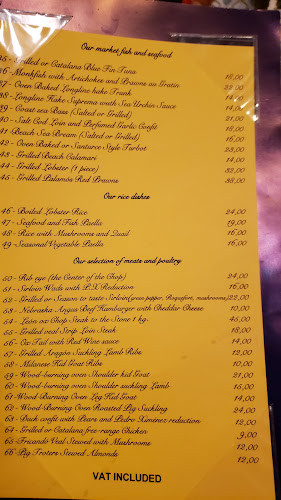 Our market fish and seafood
35 - Grilled or Catalana Blue Fin Tuna
36 - Monkfish with Artichokes and Prawns au Gratin 18,00
37 - Oven Baked Longline hake Trunk 22,00
38 - Longline Hake Suprema with Sea Urchin Sauce 14,00
39 - Coast sea Bass (Salted or Grilled) 14,00
40 - Salt Cod Loin and Perfumed Garlic Confit 21,00
41 - Beach Sea Bream (Salted or Grilled) 18,00
42 - Oven Baked or Santurce Style Turbot 16,00
43 - Grilled Beach Calamari 23,00
44 - Grilled Lobster (1 piece) 14,00
45 - Grilled Palamós Red Prawns 32,00
38,00
Our rice dishes
46 - Boiled Lobster Rice 24,00
47 - Seafood and Fish Paella 19,00
48 - Rice with Mushrooms and Quail 16,00
49 - Seasonal Vegetable Paella 16,00
Our selection of meats and poultry
50 - Rib eye (the Center of the Chop) 24,00
51 - Sirloin Wads with P.X Reduction 16,00
52 - Grilled or Season to taste Sirloin(green pepper, Roquefort, mushrooms)22,00
53 - Nebraska Angus Beef Hamburger with Cheddar Cheese 10,00
54 - León ox Chop Steak to the Stone 1 kg. 45,00
55 - Grilled veal Strip Loin Steak 18,00
56 - Ox Tail with Red Wine sauce 14,00
57 - Grilled Aragón Suckling Lamb Ribs 12,00
58 - Milanese Kid Goat Ribs 10,00
59 - Wood-burning oven Shoulder kid Goat 21,00
60 - Wood-burning oven Shoulder suckling Lamb 15,00
61 - Wood-Burning Oven Leg Kid Goat 14,00
62 - Wood-Burning Oven Roasted Pig Suckling 24,00
63 - Duck confit with Pears and Pedro Ximénez reduction 12,00
64 - Grilled or Catalana free-range Chicken 9,00
65 - Fricando Veal Stewed with Mushrooms 12,00
66 - Pig Trotters Stewed Almonds 12,00
VAT INCLUDED